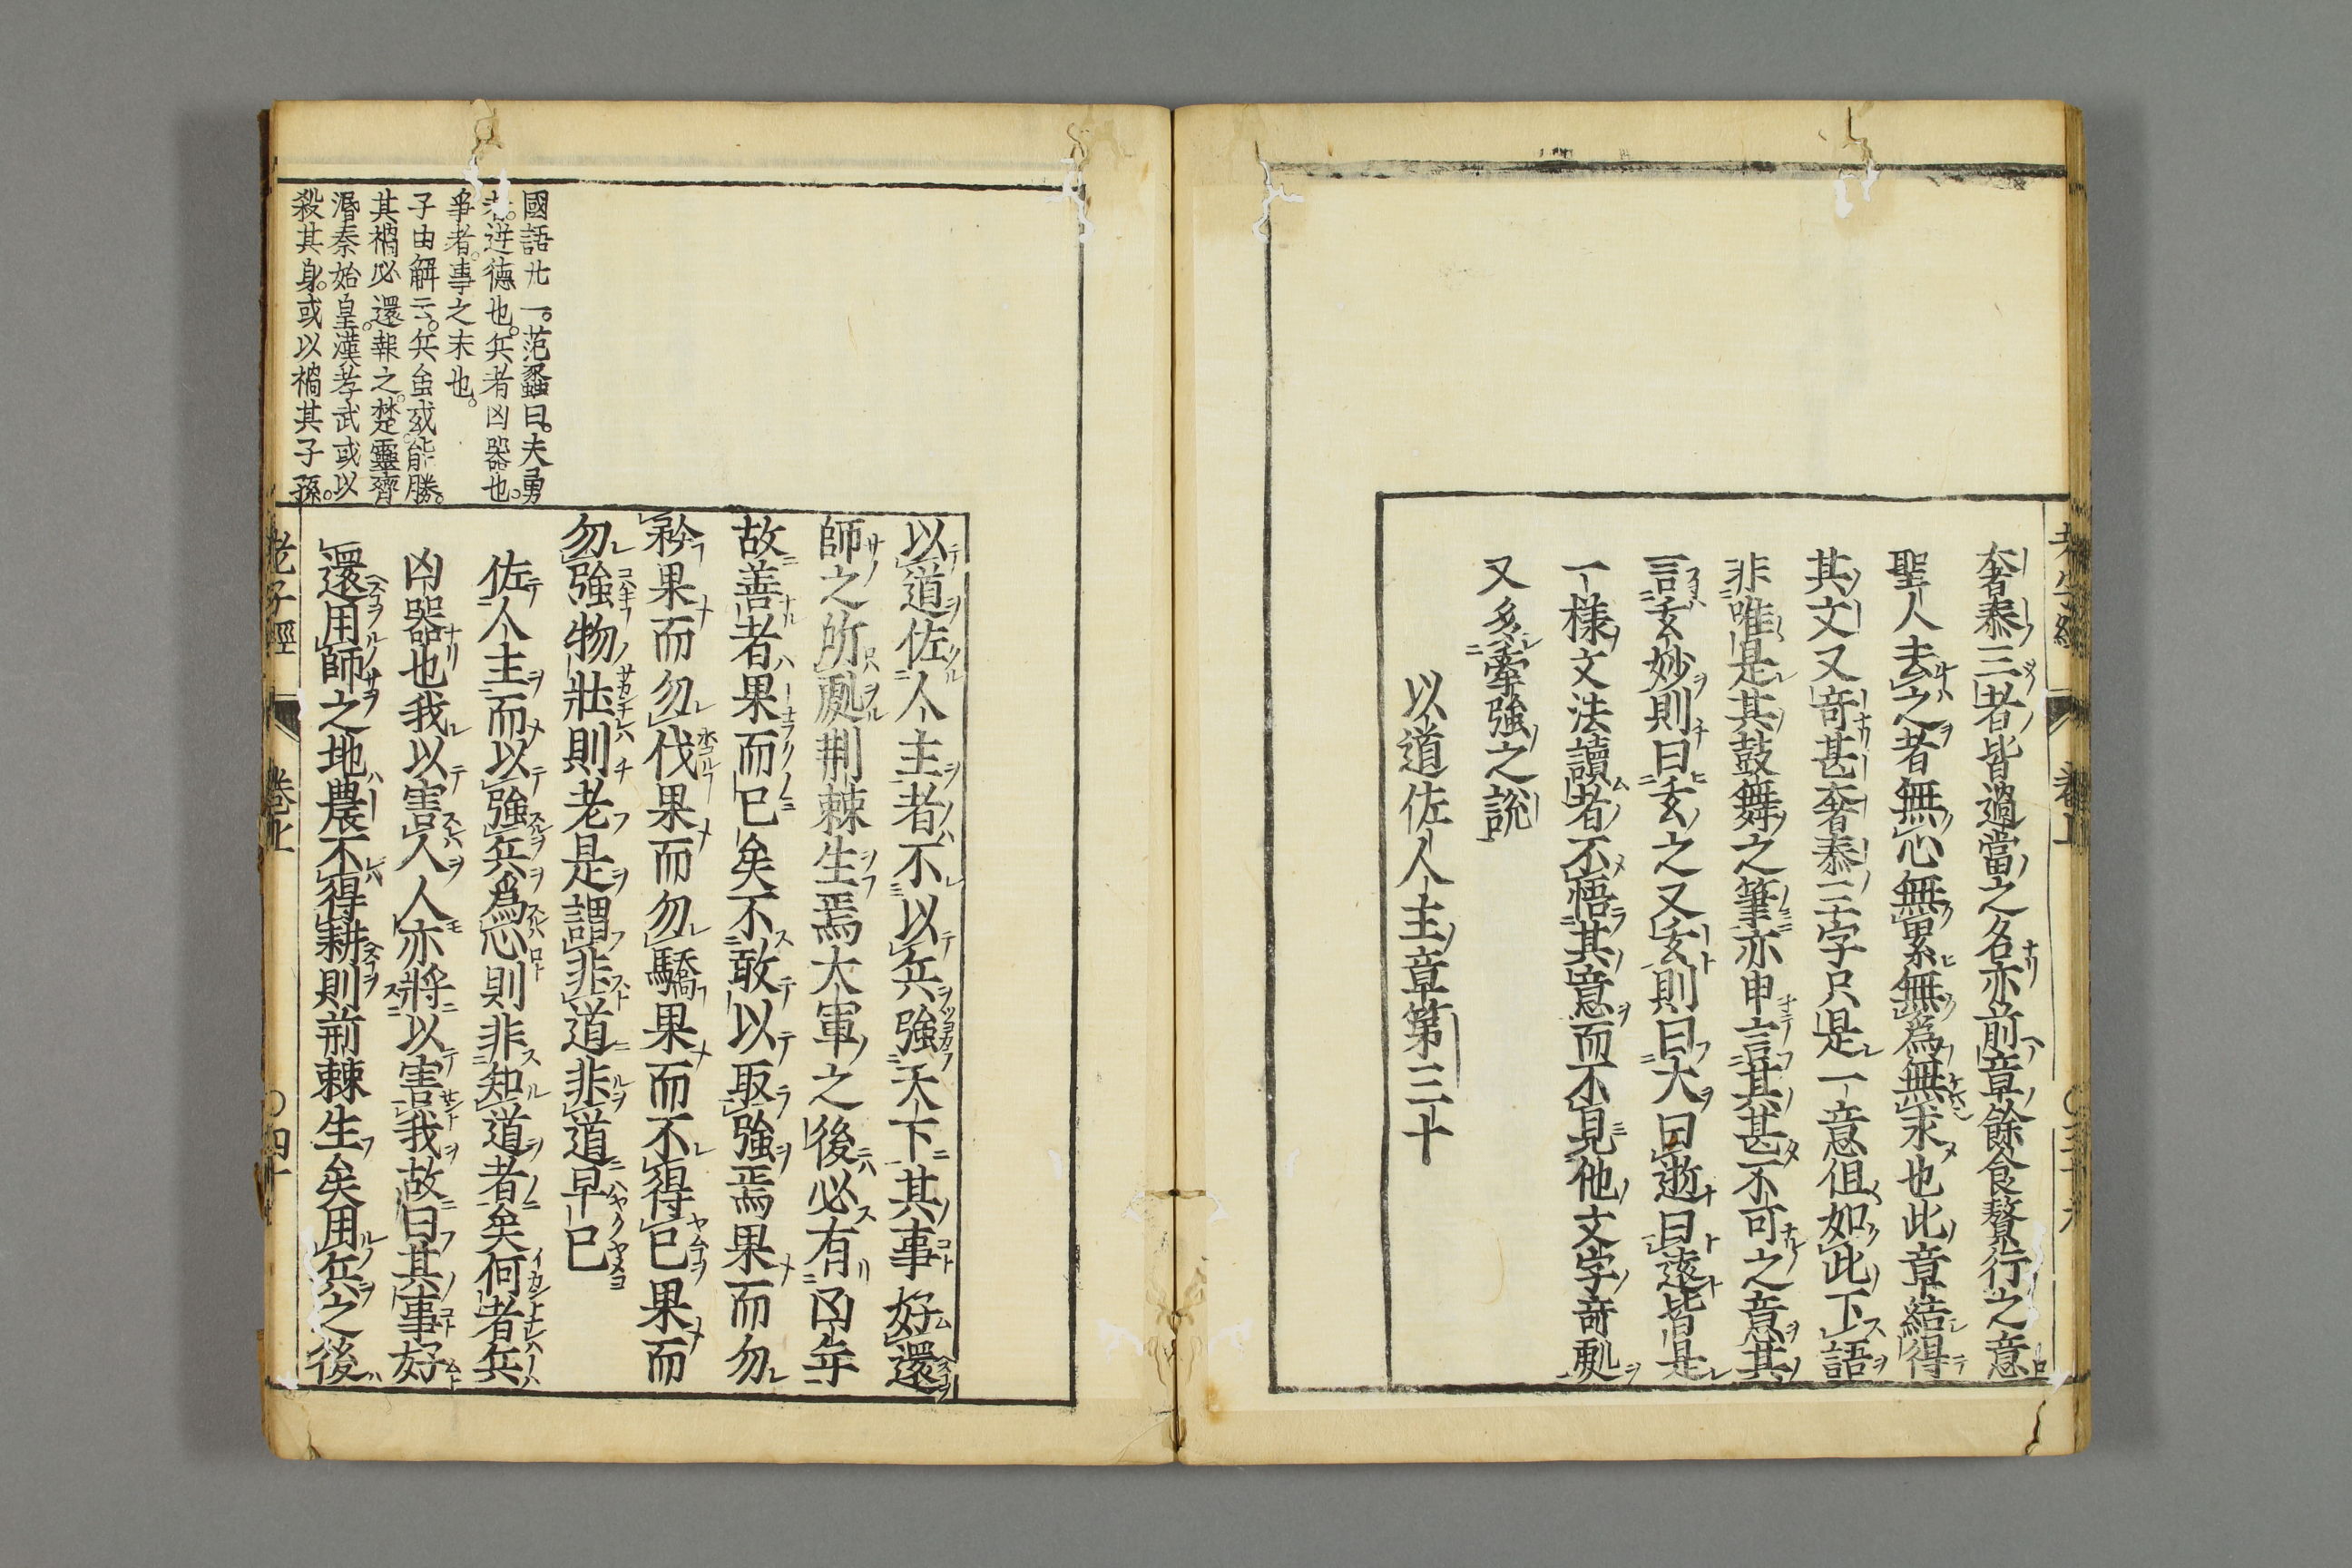 奢泰三者皆過當之名亦前章餘食贅行之意
聖人去之者無心無累無爲無求也此章結得
其文又奇甚奢泰三字只是一意但如此下語
非唯是其鼓舞之筆亦申言其甚不可之意其
言玄妙則曰玄之又玄則曰大曰逝曰遠皆是
一樣文法讀者不悟其意而不見他文字奇處
又多牽強之說
以道佐人主章第三十
國語廿一。范蠡曰。夫勇
者。逆德也。兵者凶器也。
爭者。事之末也。
子由解云。兵𫝆或能勝。
其禍必還報之。楚靈齊
湣秦始皇。漢孝武或以
殺其身。或以禍其子孫。
以道佐人主者不以兵強天下其事好還
師之所處荆棘生焉大軍之後必有凶年
故善者果而已矣不敢以取強焉果而勿
矜果而勿伐果而勿驕果而不得已果而
勿強物壯則老是謂非道非道早已
佐人主而以強兵爲心則非知道者矣何者兵
凶器也我以害人人亦將以害我故曰其事好
還用師之地農不得耕則荊棘生矣用兵之後
老子經
卷上
〇四十